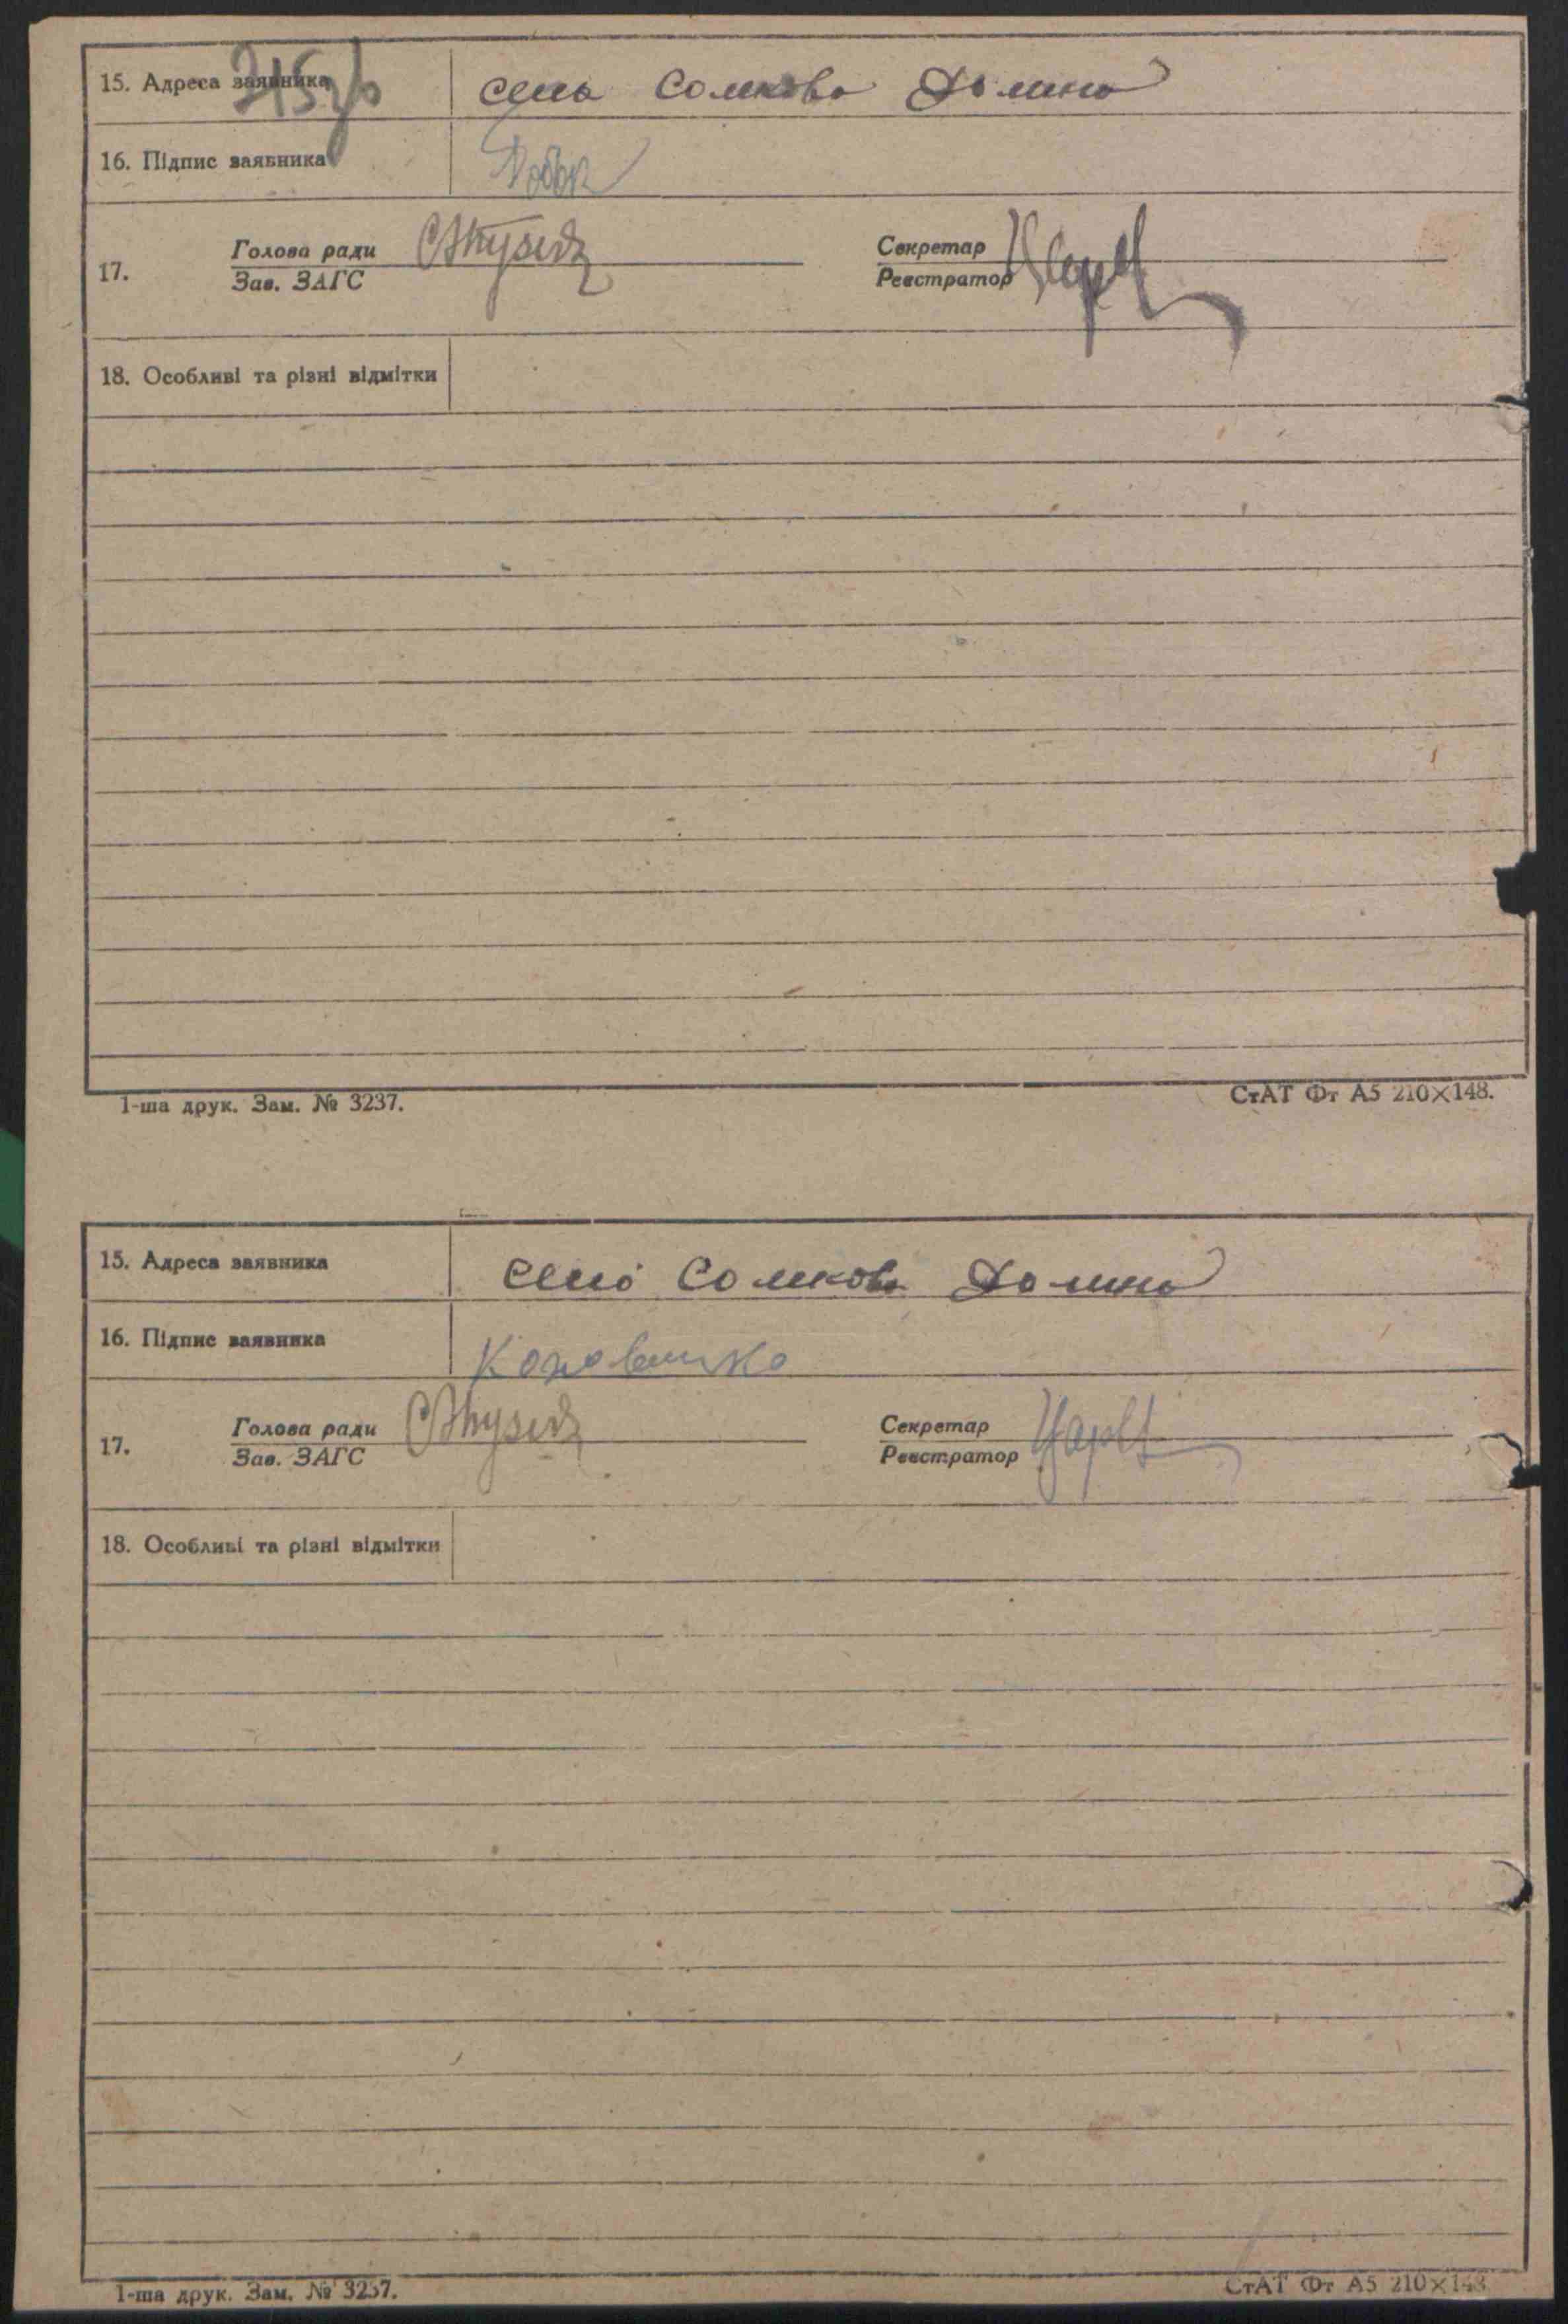 15. Адреса заявника село Сомкова Долина
16. Підпис заявника
17. Голова ради Секретар
Зав. ЗАГС Реєстратор
18. Особливі та різні відмітки
1-ша друк. Зам. № 3237. СтАТ Фт А5 210×148.
15. Адреса заявника село Сомкова Долина
16. Підпис заявника
17. Голова ради Секретар
Зав. ЗАГС Реєстратор
18. Особливі та різні відмітки
1-ша друк. Зам. № 3237. СтАТ Фт А5 210×148